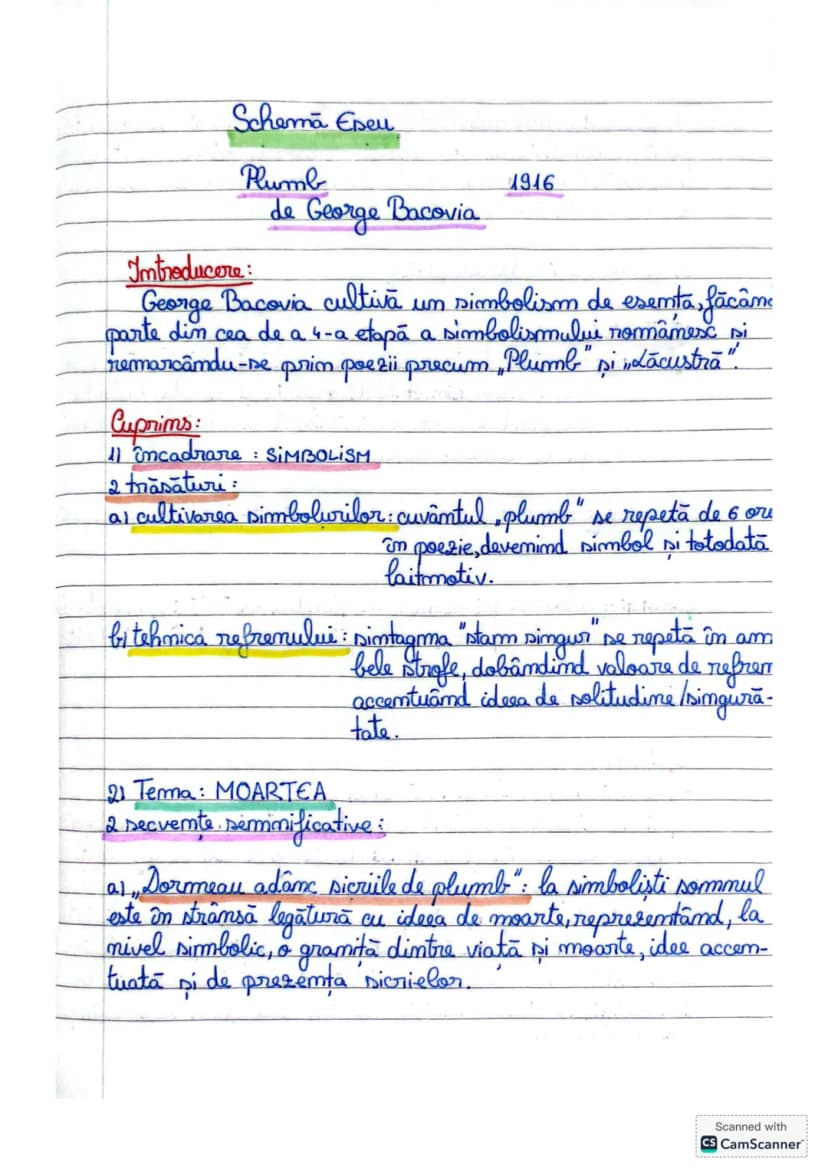 Schemă Eseu
Plumb 1916
de George Bacovia
Introducere:
George Bacovia cultivă un simbolism de esență, făcân
parte din cea de a 4-a etapă a simbolismului românesc și
remarcându-se prin poezii precum „Plumb" și „Lacustră".
Cuprins:
1) încadrare : SIMBOLISM
2 trăsături :
a) cultivarea simbolurilor: cuvântul „plumb" se repetă de 6 ori
în poezie, devenind simbol și totodată
laitmotiv.
b) tehnica refrenului : sintagma "stam singur" se repetă în am
bele strofe, dobândind valoare de refren
accentuând ideea de solitudine / singură-
tate.
2) Tema: MOARTEA
2 secvențe semnificative :
a) „Dormeau adânc sicriile de plumb": la simboliști somnul
este în strânsă legătură cu ideea de moarte, reprezentând, la
nivel simbolic, o graniță dintre viață și moarte, idee accen-
tuată și de prezența sicrielor.
Scanned with
CS CamScanner